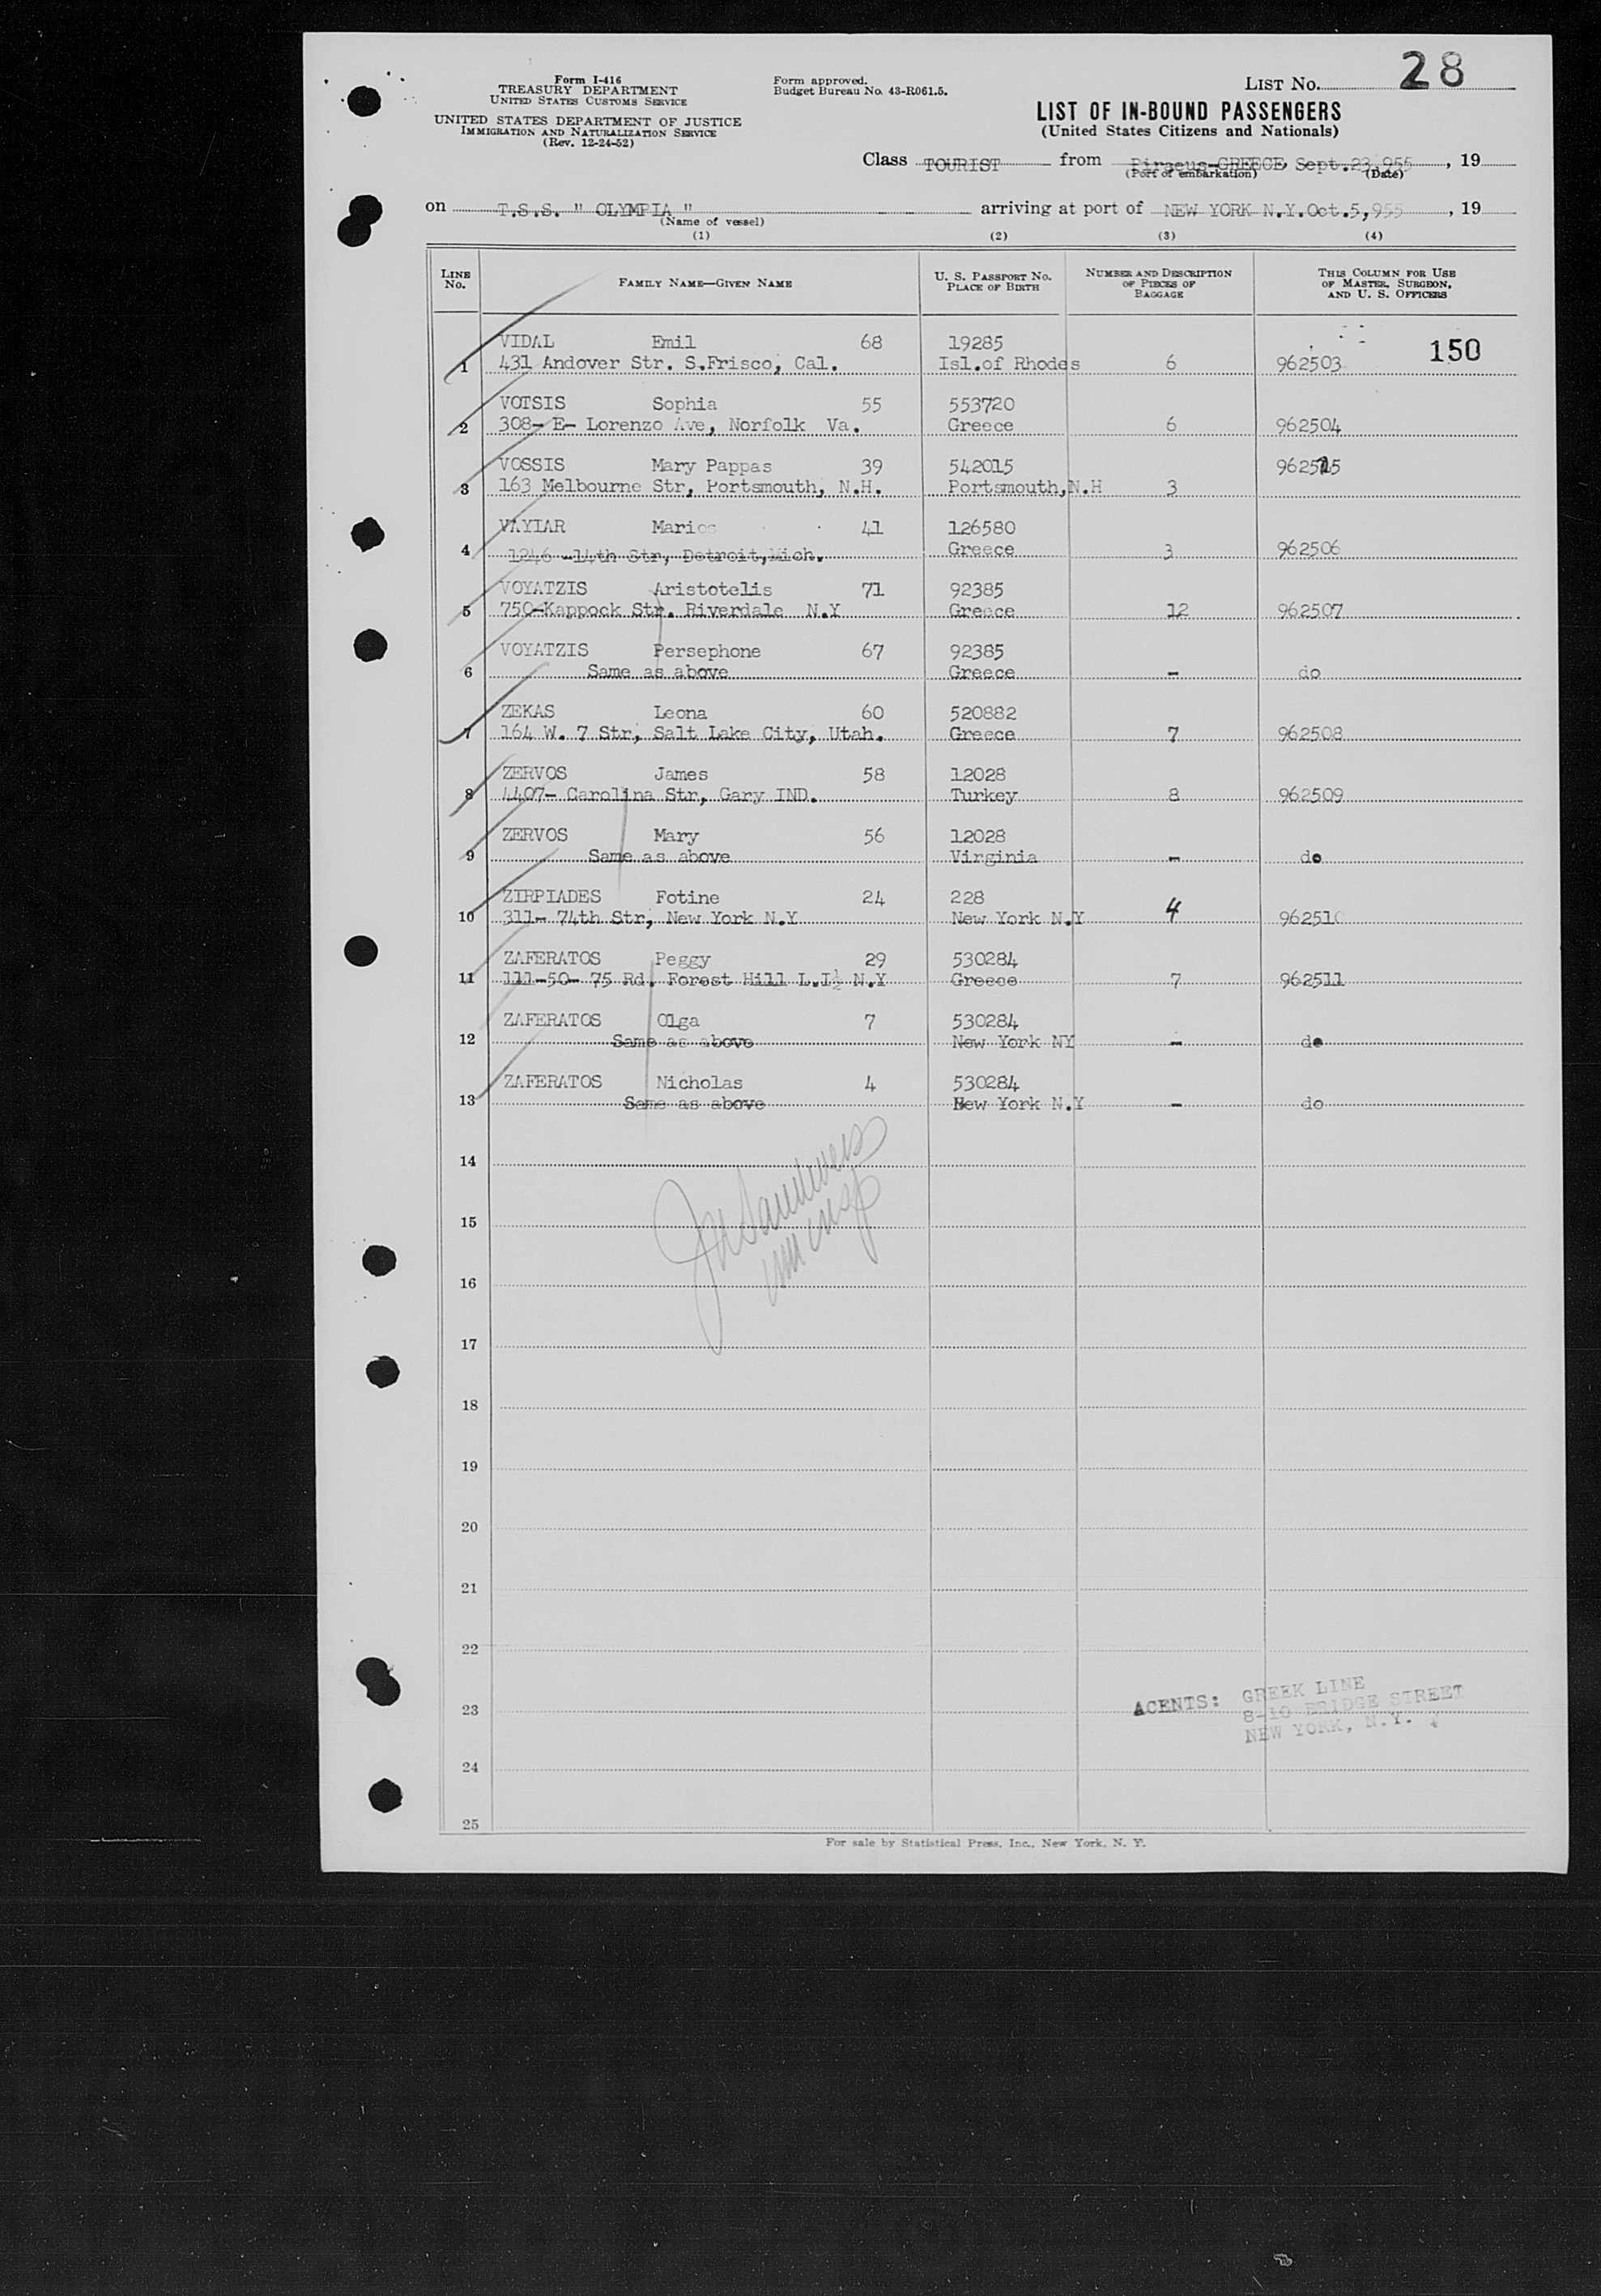 Form I-416
TREASURY DEPARTMENT
UNITED STATES CUSTOMS SERVICE
UNITED STATES DEPARTMENT OF JUSTICE
IMMIGRATION AND NATURALIZATION SERVICE
(Rev. 12-24-52)
Form approved.
Budget Bureau No. 43-R061.5.
LIST No. 28
LIST OF IN-BOUND PASSENGERS
(United States Citizens and Nationals)
Class TOURIST from Piraeus-GREECE, Sept.23,955, 19
(Port of embarkation) (Date)
on T.S.S. " OLYMPIA " arriving at port of NEW YORK N.Y.Oct.5,955, 19
(Name of vessel)
(1) (2) (3) (4)
LINE No. FAMILY NAME—GIVEN NAME U. S. PASSPORT No. PLACE OF BIRTH NUMBER AND DESCRIPTION OF PIECES OF BAGGAGE THIS COLUMN FOR USE OF MASTER, SURGEON, AND U. S. OFFICERS
VIDAL Emil 68 19285 150
1 431 Andover Str. S.Frisco, Cal. Isl.of Rhodes 6 962503
VOTSIS Sophia 55 553720
2 308- E- Lorenzo Ave, Norfolk Va. Greece 6 962504
VOSSIS Mary Pappas 39 542015
3 163 Melbourne Str, Portsmouth, N.H. Portsmouth,N.H 3
VAYIAR 41 126580
4 1246 -14th Str, Detroit,Mich. Greece 3 962506
VOYATZIS Aristotelis 71 92385
5 750-Kappock Str. Riverdale N.Y Greece 12 962507
VOYATZIS Persephone 67 92385
6 Same as above Greece - do
ZEKAS Leona 60 520882
7 164 W. 7 Str, Salt Lake City, Utah. Greece 7 962508
ZERVOS James 58 12028
8 4407- Carolina Str, Gary IND. Turkey 8 962509
ZERVOS Mary 56 12028
9 Same as above Virginia - do
ZIRPIADES Fotine 24 228
10 311- 74th Str, New York N.Y New York N.Y 4 962510
ZAFERATOS Peggy 29 530284
11 111-50- 75 Rd. Forest Hill L.I½ N.Y Greece 7 962511
ZAFERATOS Olga 7 530284
12 Same as above New York NY - do
ZAFERATOS Nicholas 4 530284
13 Same as above New York N.Y - do
14
15
16
17
18
19
20
21
22
23
24
25
AGENTS: GREEK LINE
8-10 BRIDGE STREET
NEW YORK, N.Y. 4
For sale by Statistical Press, Inc., New York, N. Y.